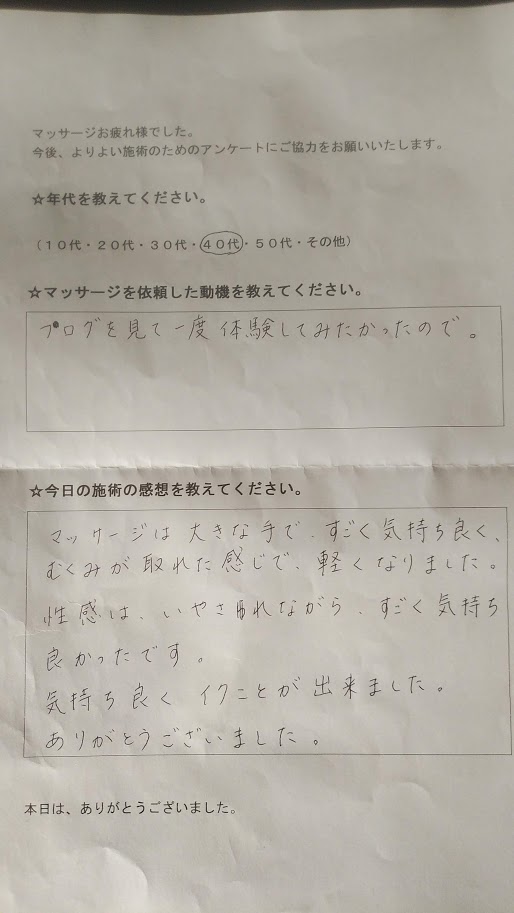 マッサージお疲れ様でした。
今後、よりよい施術のためのアンケートにご協力をお願いいたします。
☆年代を教えてください。
（１０代・２０代・３０代・４０代・５０代・その他）
☆マッサージを依頼した動機を教えてください。
ブログを見て一度体験してみたかったので。
☆今日の施術の感想を教えてください。
マッサージは大きな手で、すごく気持ち良く、
むくみが取れた感じで、軽くなりました。
性感は、いやされながら、すごく気持ち
良かったです。
気持ち良くイクことが出来ました。
ありがとうございました。
本日は、ありがとうございました。